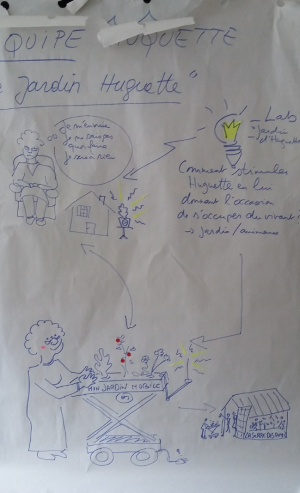 QUIPE HUGUETTE
Jardin Huguette"
je m'ennuie
je sers à rien
Lab
Jardin
d'Huguette
Comment stimuler
Huguette en lui
donnant l'occasion
de s'occuper du vivant
→ jardin/animaux
MON JARDIN MOBILE